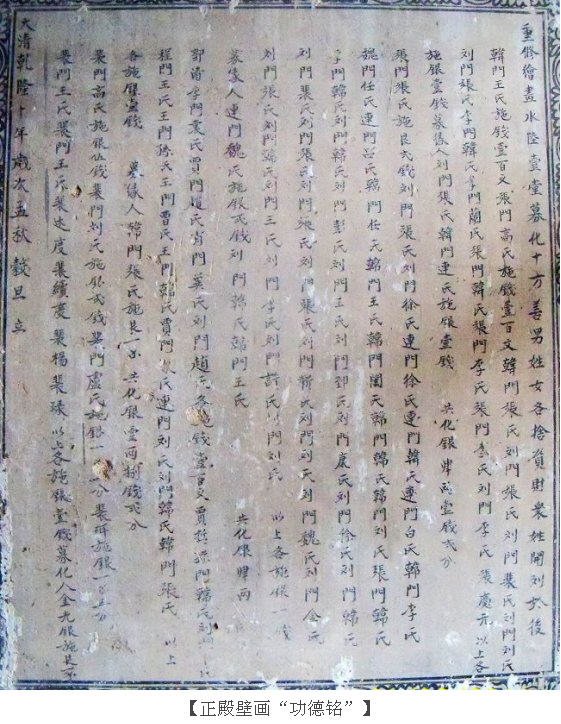 重修繪畫水陸壹堂募化十方善男姓女各捨資財衆姓開列於後
韓門王氏施錢壹百文張門高氏施錢壹百文韓門張氏刘門張氏刘門裴氏刘門刘氏
刘門張氏李門韓氏李門蘭氏張門韓氏張門李氏張門 氏刘門李氏張慶元以上各
施銀壹錢募化人刘門張氏韓門連氏施銀壹錢 共化銀肆両壹錢弍分
張門張氏施艮弍錢刘門張氏刘門徐氏連門徐氏連門韓氏連門白氏韓門李氏
魏門任氏連門呂氏韓門任氏韓門王氏韓門閻氏韓門韓氏韓門刘氏張門韓氏
李門韓氏刘門韓氏刘門彭氏刘門王氏刘門 氏刘門康氏刘門徐氏刘門韓氏
刘門裴氏刘門張氏刘門 氏刘門張氏刘門 氏刘門刘氏刘門魏氏刘門金氏
刘門張氏刘門 氏刘門王氏刘門李氏刘門許氏刘門刘氏 以上各施銀一錢
募化人連門魏氏施銀弍錢刘門韓氏韓門王氏 共化銀肆両
李門袁氏賈門 氏肖門 氏刘門趙氏各施錢壹百文賈 門韓氏刘門 氏
程門王氏王門孫氏王門曹氏王門韓氏賈門 氏連門刘氏刘門韓氏韓門張氏 以上
各施銀壹錢 募化人韓門張氏施艮一 共化銀壹両捌錢弍分
裴門高氏施銀伍錢裴門刘氏施銀弍錢 門盧氏施銀一 分裴 施銀一 五分
裴門王氏裴門王氏裴 度裴續度裴楊裴 以上各施銀壹錢募化人金 施艮
大清乾隆十年歲次孟秋 穀旦立
【正殿壁画“功德铭”】